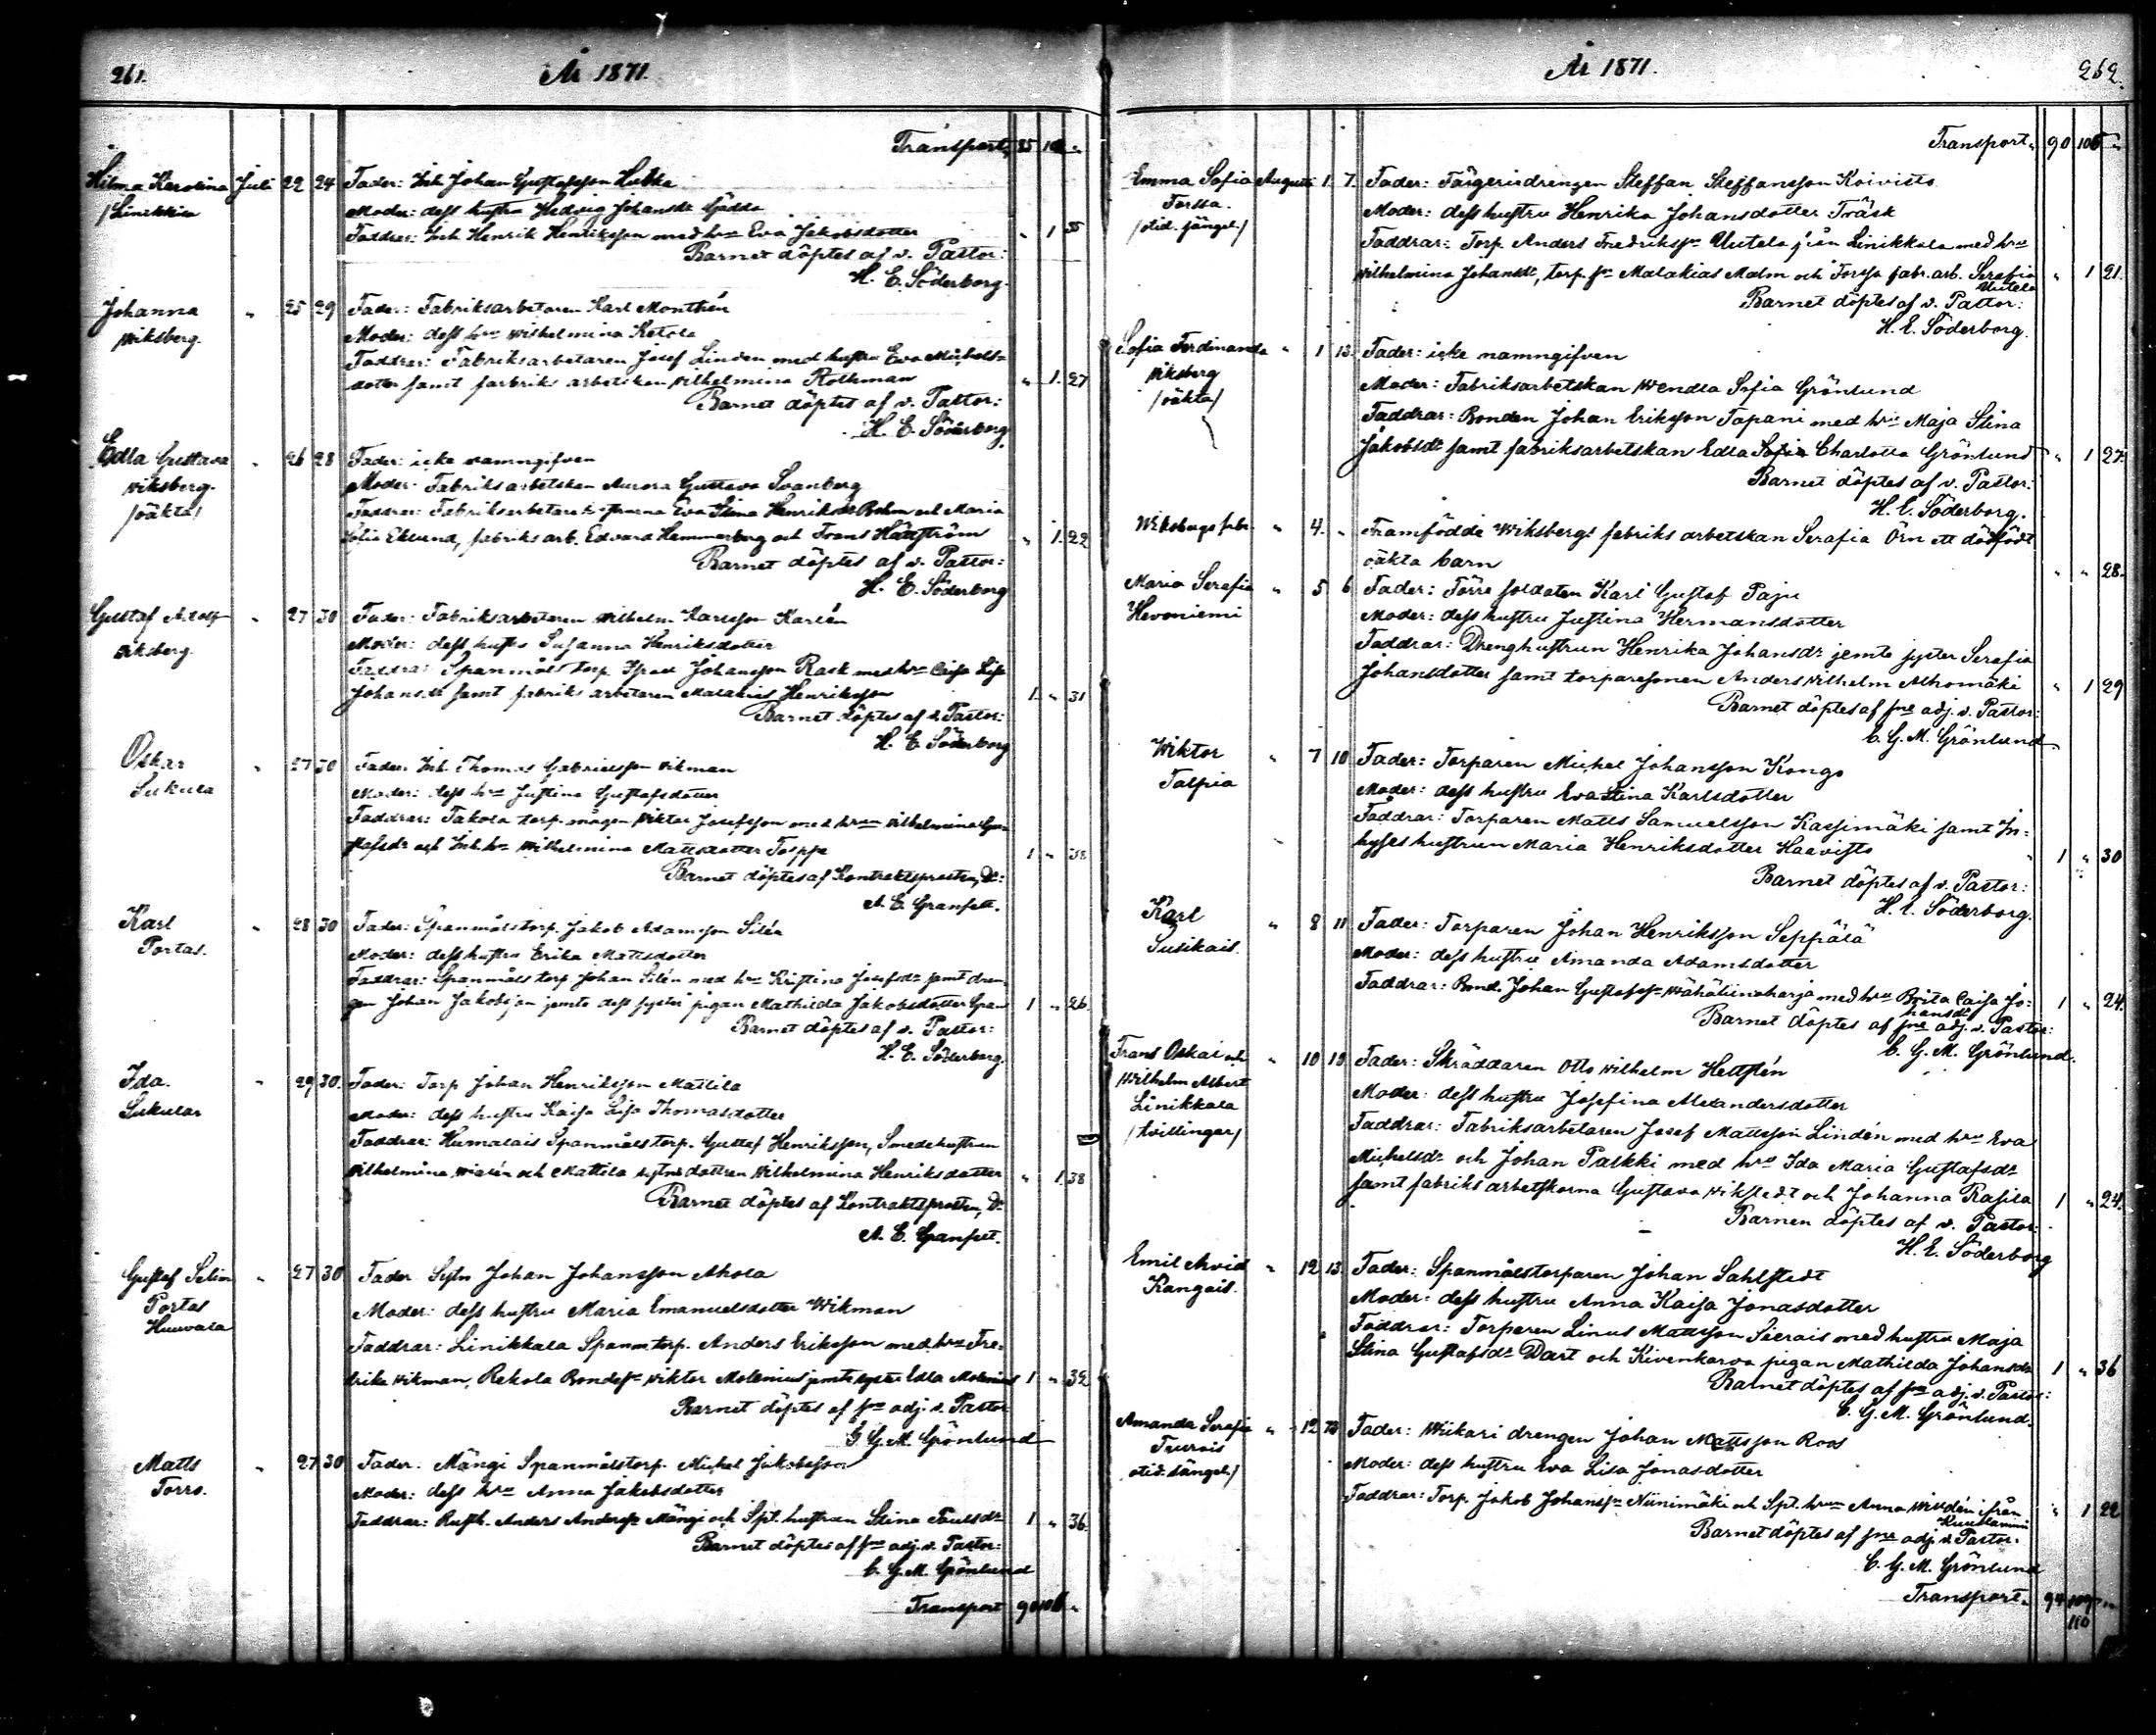 261. År 1871.
Transport 85
Hilma Karolina Juli 22 24 Fader: Inh. Johan Gustafsson
Linikkala Moder: dess hustru Hedvig Johansdr
Faddrar: Inh. Henrik Henriksson med hru Eva Jakobsdotter " 1 35
Barnet döptes af v. Pastor:
H. E. Söderborg.
Johanna " 25 29 Fader: Fabriksarbetaren Karl Monthén
Wiksberg. Moder: dess hru Wilhelmina Ketola
Faddrar: Fabriksarbetaren Josef Linden med hustru Eva Michels-
dotter samt farbriks arbetskan Wilhelmina Rothman " 1. 27
Barnet döptes af v. Pastor:
H. E. Söderborg
Edla Gustava " 26 28 Fader: icke namngifven
Wiksberg. Moder: Fabriksarbetskan Aurora Gustava Svanberg
/oäkta/ Faddrar: Fabriksarbetare hustrurna Eva Stina Henriksdr Bohm och Maria
Sofia Eklund, fabriks arb. Edvard Hemmerberg och Frans Häggström " 1. 22
Barnet döptes af v. Pastor:
H. E. Söderborg
Gustaf Adolf " 27 30 Fader: Fabriksarbetaren Wilhelm Karlsson Karlén
Wiksberg. Moder: dess hustru Susanna Henriksdotter
Faddrar: Spanmåls torp. Isak Johansson Rask med hru Caisa Lisa
Johansdr samt fabriks arbetaren Malakias Henriksson 1. " 31
Barnet döptes af v. Pastor:
H. E. Söderborg
Oskar " 27 30 Fader: Inh. Thomas Gabrielsson Wikman
Sukula Moder: dess hru Justina Gustafsdotter
Faddrar: Takola torp. mågen Wiktor Josefsson med hrun Wilhelmina Gu-
stafsdr och Inh. hru Wilhelmina Mattsdotter 1 " 38
Barnet döptes af Kontraktsprosten, Dr:
A. E. Granfelt.
Karl " 28 30 Fader: Spanmålstorp. Jakob Adamsson Silén
Portas. Moder: dess hustru Erika Mattsdotter
Faddrar: Spanmåls torp Johan Silén med hru Kristina Josefsdr samt dren-
gen Johan Jakobsson jemte dess syster pigan Mathilda Jakobsdotter 1 " 26
Barnet döptes af v. Pastor:
H. E. Söderborg.
Ida. " 29 30. Fader: Torp Johan Henriksson Mattila
Sukulas Moder: dess hustru Kaisa Lisa Thomasdotter
Faddrar: Humalais Spanmåls torp. Gustaf Henriksson, Smedehustrun
Wilhelmina och Mattila sytnings dottren Wilhelmina Henriksdotter " 1. 38
Barnet döptes af Kontraktsprosten, Dr
A. E. Granfelt.
Gustaf Selim " 27 30 Fader Sytn Johan Johansson Ahola
Portas Moder: dess hustru Maria Emanuelsdotter Wikman
Huuvala Faddrar: Linikkala Spanm. torp. Anders Eriksson med hru Fre-
drika Wikman, Rekola Bondess Wiktor Molenius jemte syster Edla Molenius 1 " 32
Barnet döptes af sne adj. v. Pastor
C. G. M. Grönlund
Matts " 27 30 Fader: Mängi Spanmålstorp. Michel Jakobsson
Torro. Moder: dess hru Anna Jakobsdotter
Faddrar: Rusth. Anders Anderss. Mängi och Spt. hustrun Stina Paulsdr 1 " 36.
Barnet döptes af sne adj. v. Pastor:
C. G. M. Grönlund
Transport 90 106 "
År 1871. 262.
Transport " 90 105 "
Emma Sofia Augusti 1. 7. Fader: Färgeridrengen Steffan Steffansson Koivisto
Forssa. Moder: dess hustru Henrika Johansdotter Träsk
/otid. sängel./ Faddrar: Torp. Anders Fredrikss. Uutela från Linikkala med hru
Wilhelmina Johansdr, torp. sn Malakias Malm och Forssa fabr. arb. Serafia " 1 21.
Uutela
Barnet döptes af v. Pastor:
H. E. Söderborg.
Sofia Ferdinanda " 1 13. Fader: icke namngifven
Wiksberg Moder: Fabriksarbetskan Wendla Sofia Grönlund
/oäkta/ Faddrar: Bonden Johan Eriksson Tapani med hru Maja Stina
Jakobsdr samt fabriksarbetskan Edla Sofia Charlotta Grönlund " 1 27.
Barnet döptes af v. Pastor:
H. E. Söderborg.
Wiksbergs fabr. " 4. " Framfödde Wiksbergs fabriks arbetskan Serafia Örn ett dödfödt
oäkta barn " " 28.
Maria Serafia " 5 6 Fader: Förre soldaten Karl Gustaf Paju
Hevoniemi Moder: dess hustru Justina Hermansdotter
Faddrar: Drenghustrun Henrika Johansdr jemte syster Serafia
Johansdotter samt torparesonen Anders Wilhelm Alhomäki " 1 29
Barnet döptes af sne adj. v. Pastor:
C. G. M. Grönlund
Wiktor " 7 10 Fader: Torparen Michel Johansson Kongo
Talpia Moder: dess hustru Eva Stina Karlsdotter
Faddrar: Torparen Matts Samuelsson Kassimäki samt In-
hyses hustrun Maria Henriksdotter Haavisto 1 " 30
Barnet döptes af v. Pastor:
H. E. Söderborg.
Karl " 8 11 Fader: Torparen Johan Henriksson Seppälä
Susikais. Moder: dess hustru Amanda Adamsdotter
Faddrar: Bond. Johan Gustafss. Wähäliinaharja med hru Brita Caisa Jo- 1 " 24.
hansdr
Barnet döptes af sne adj. v. Pastor:
C. G. M. Grönlund.
Frans Oskar och " 10 13 Fader: Skräddaren Otto Wilhelm Hellstén
Wilhelm Albert Moder: dess hustru Josefina Alexandersdotter
Linikkala Faddrar: Fabriksarbetaren Josef Mattsson Lindén med hru Eva
/tvillingar/ Michelsdr och Johan Palkki med hru Ida Maria Gustafsdr
samt fabriks arbetskorna Gustava Wikstedt och Johanna Rasila 1 " 24.
Barnen döptes af v. Pastor:
H. E. Söderborg
Emil Arvid " 12 13. Fader: Spanmålstorparen Johan Sahlstedt
Kangais. Moder: dess hustru Anna Kaisa Jonasdotter
Faddrar: Torparen Linus Mattsson Sierais med hustru Maja
Stina Gustafsdr Dart och Kivenkarva pigan Mathilda Johansdr 1 " 36
Barnet döptes af sne adj. v. Pastor:
C. G. M. Grönlund.
Amanda Serafia " 12 13 Fader: Wiikari drengen Johan Mattsson Roos
Moder: dess hustru Eva Lisa Jonasdotter
otid. sängel./ Faddrar: Torp. Jakob Johanss. Niinimäki och Spt. hrun Anna ifrån " 1 22
Kuuslammi
Barnet döptes af sne adj. v. Pastor:
C. G. M. Grönlund
Transport " 94 109 "
110